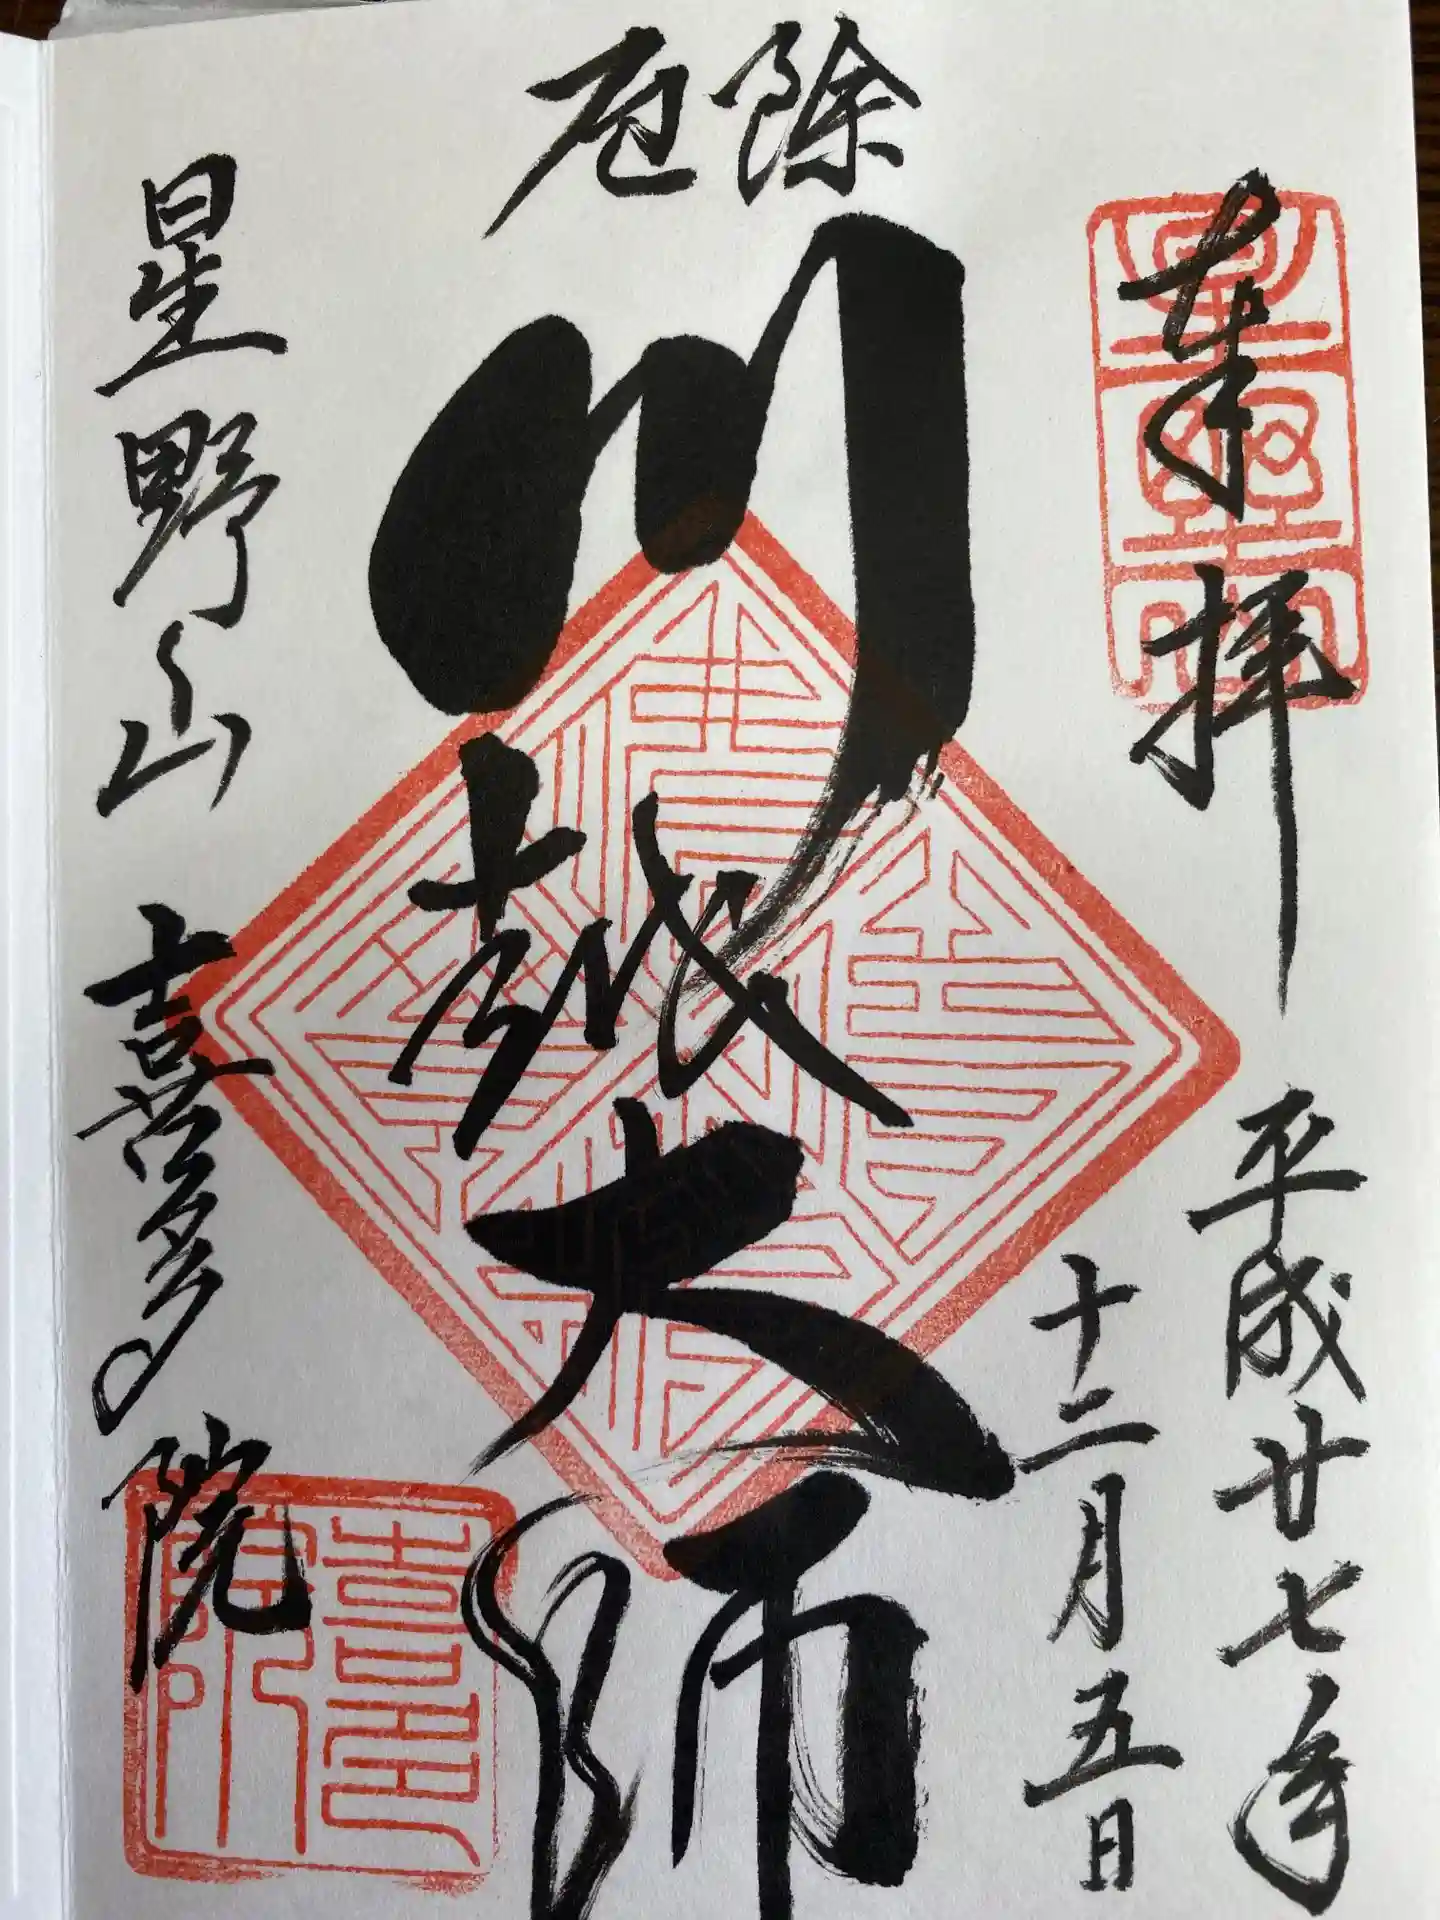 奉拝
平成廿七年
十二月五日
厄除
川越大師
星野山
喜多院
喜多院